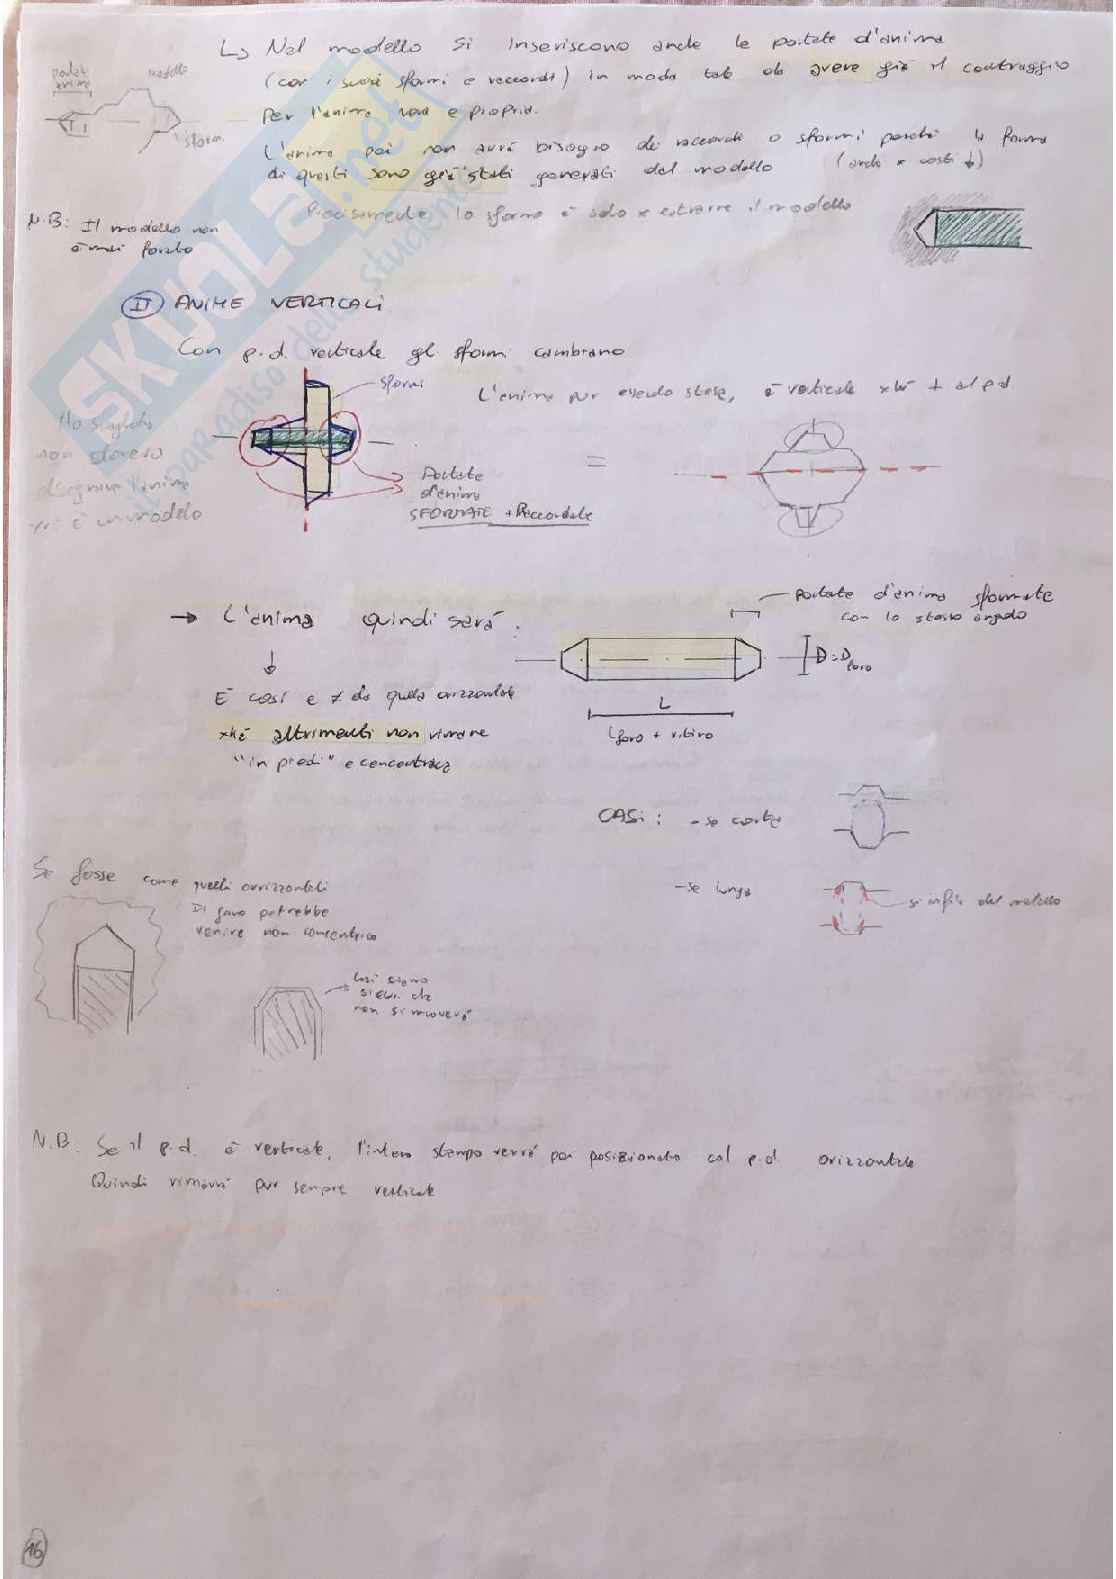 ↳ Nel modello si inseriscono anche le portate d'anima
(con i suoi sformi e raccordi) in modo tale da avere già il centraggio
per l'anima vera e propria.
portata anima
modello
sformi
L'anima poi non avrà bisogno di raccordi o sformi perché la forma
di questi sono già stati generati dal modello (anche x costi ↓)
Precisamente lo sformo è solo x estrarre il modello
N.B: Il modello non
è mai forato
II ANIME VERTICALI
Con p.d. verticale gli sformi cambiano
sformi
L'anima pur essendo stesa, è verticale xké ⊥ al p.d
Ho sbagliato
non dovevo
disegnare l'anima
è un modello
=
Portate
d'anima
SFORMATE + Raccordate
→ L'anima quindi sarà:
portate d'anima sformate
con lo stesso angolo
D = D foro
L
L foro + ritiro
È così e ≠ da quella orizzontale
xké altrimenti non rimane
"in piedi" e concentrica
CASI: - se corta
- se lunga
si infila del metallo
Se fosse come quelli orizzontali
Di sicuro potrebbe
venire non concentrico
Così siamo
sicuri che
non si muoverà
N.B. Se il p.d. è verticale, l'intero stampo verrà poi posizionato col p.d. orizzontale
Quindi rimarrà pur sempre verticale
16
SKUOLA.net
paradiso dello studente